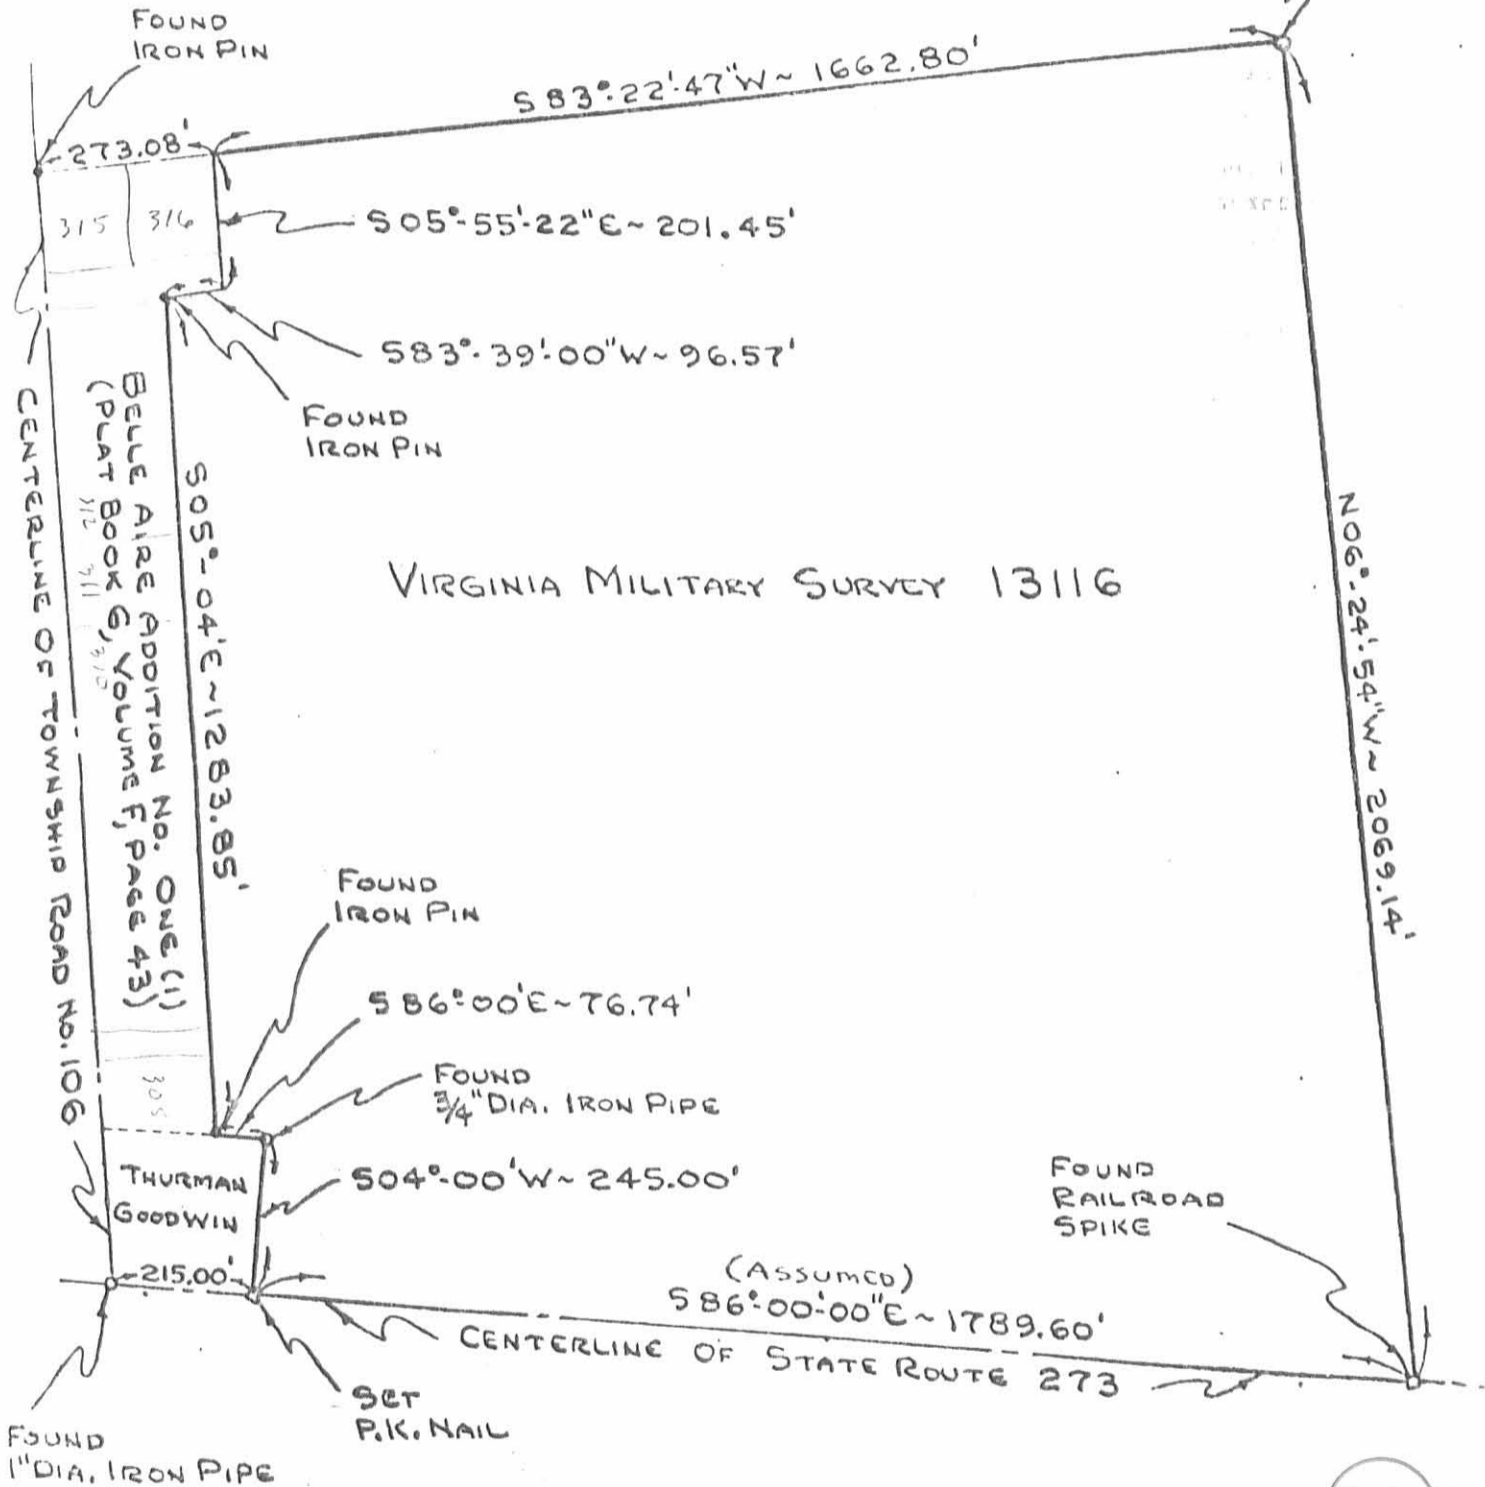 FOUND
IRON PIN
S 83°-22'-47"W ~ 1662.80'
273.08'
315
316
S05°-55'-22"E ~ 201.45'
S83°-39'-00"W ~ 96.57'
FOUND
IRON PIN
CENTERLINE OF TOWNSHIP ROAD NO. 106
BELLE AIRE ADDITION NO. ONE (1)
(PLAT BOOK 6, VOLUME F, PAGE 43)
312 311 310
S05°-04'E ~ 1283.85'
VIRGINIA MILITARY SURVEY 13116
N06°-24'-54"W ~ 2069.14'
FOUND
IRON PIN
S 86°-00'E ~ 76.74'
FOUND
3/4" DIA. IRON PIPE
305
THURMAN
GOODWIN
S04°-00'W ~ 245.00'
FOUND
RAILROAD
SPIKE
215.00'
(ASSUMED)
S 86°-00'-00"E ~ 1789.60'
CENTERLINE OF STATE ROUTE 273
SET
P.K. NAIL
FOUND
1" DIA. IRON PIPE